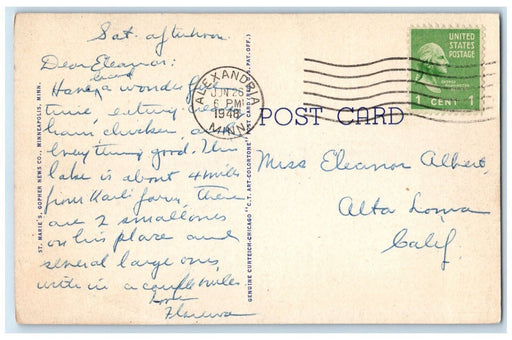 Sat. afternoon
Dear Eleanor:
Have a wonderful
time, eating cream
ham, chicken, and
everything good. This
lake is about 4 miles
from Karl farm, there
are 2 small ones
on his place and
several large ones
with in a couple miles
Love
ST. MARIE'S GOPHER NEWS CO., MINNEAPOLIS, MINN.
GENUINE CURTEICH-CHICAGO "C.T. ART-COLORTONE" POST CARD (REG. U.S. PAT. OFF.)
ALEXANDRIA
JUN 26
6 PM
1948
MINN.
UNITED
STATES
POSTAGE
1 CENT 1
POST CARD
Miss Eleanor Albert,
Alta Loma
Calif.